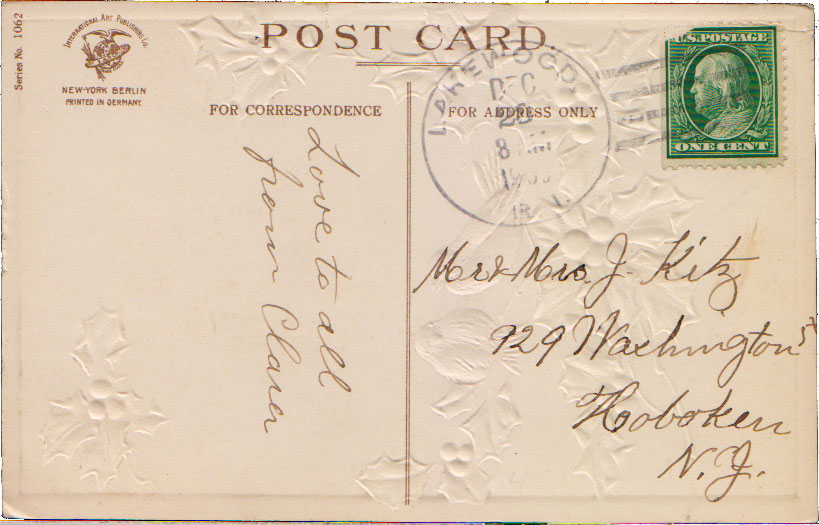 Series No. 1062
INTERNATIONAL ART PUBLISHING Co.
NEW-YORK BERLIN
PRINTED IN GERMANY.
POST CARD.
FOR CORRESPONDENCE
FOR ADDRESS ONLY
LAKEWOOD
DEC
8 AM
R.I.
U.S. POSTAGE
ONE CENT
Love to all
from Clara
Mr & Mrs. J. Kitz
929 Washington St
Hoboken
N. J.